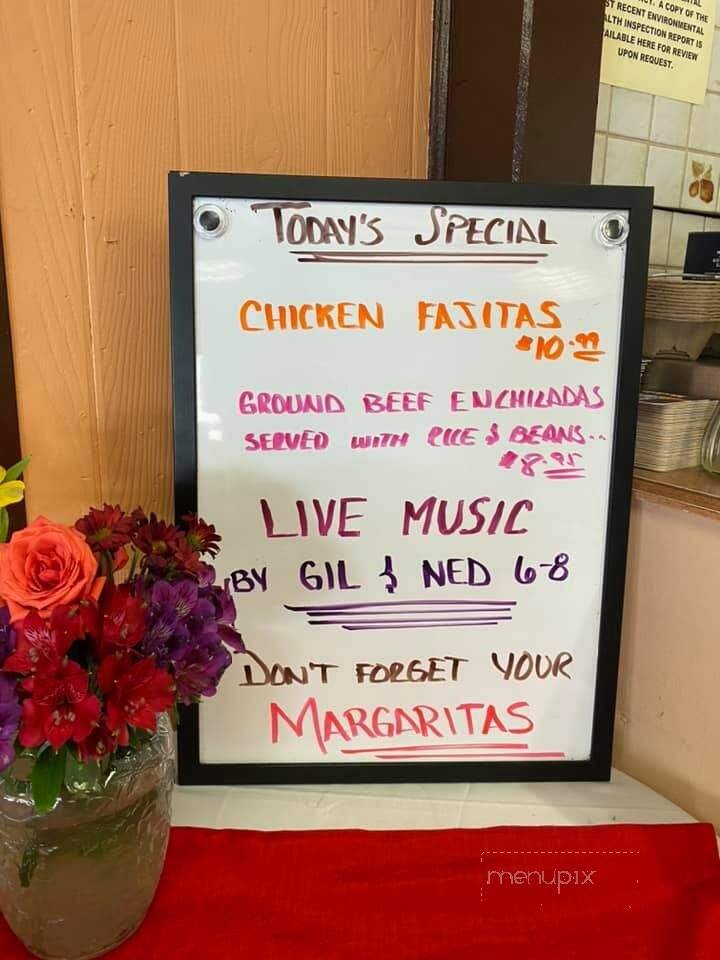 CY. A COPY OF THE
ST RECENT ENVIRONMENTAL
ALTH INSPECTION REPORT IS
AILABLE HERE FOR REVIEW
UPON REQUEST.
TODAY'S SPECIAL
CHICKEN FAJITAS
$10.99
GROUND BEEF ENCHILADAS
SERVED WITH RICE & BEANS..
$8.95
LIVE MUSIC
BY GIL & NED 6-8
DON'T FORGET YOUR
MARGARITAS
menupix